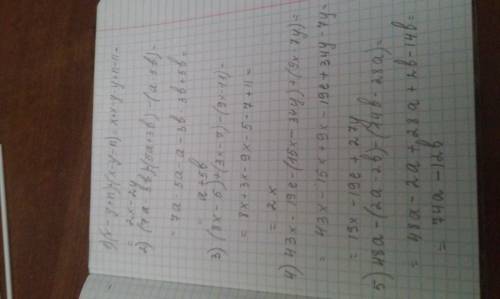 1) (x-y+n)+(x-y-n)=x+x-y-y+n-n=
=2x-2y
2) (7a-8b)-(5a+3b)-(a-5b)=
=7a-5a-a-3b-3b+5b=
=a+5b
3) (8x-5)+(3x-7)-(9x-11)=
=8x+3x-9x-5-7+11=
=2x
4) 43x-19c-(15x-34y)+(9x-7y)=
=43x-15x+9x-19c+34y-7y=
=19x-19c+27y
5) 48a-(2a-2b)-(14b-28a)=
=48a-2a+28a+2b-14b=
=74a-12b